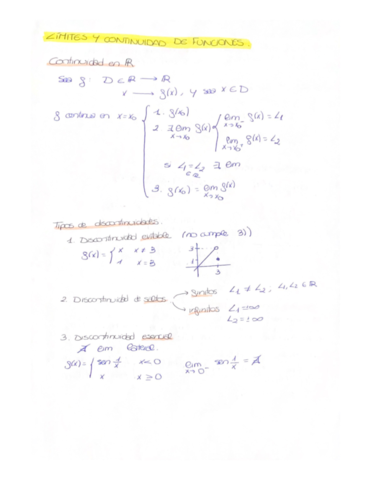 LÍMITES Y CONTINUIDAD DE FUNCIONES:
Continuidad en ℝ
Sea f: D ⊂ ℝ → ℝ
x → f(x), y sea x ∈ D
f continua en x=x₀
1. f(x₀)
2. ∃ lim x→x₀ f(x)
lim x→x₀⁻ f(x) = L₁
lim x→x₀⁺ f(x) = L₂
si L₁ = L₂ ∃ lim
∈ ℝ
3. f(x₀) = lim x→x₀ f(x)
Tipos de discontinuidades.
1. Discontinuidad evitable (no cumple 3)
f(x) = { x x ≠ 3
1 x = 3
3
1
3
2. Discontinuidad de saltos
finitos L₁ ≠ L₂, L₁, L₂ ∈ ℝ
infinitos L₁ = ∞
L₂ = ∞
3. Discontinuidad esencial
∄ lim lateral.
f(x) = { sen 1/x x < 0
x x ≥ 0
lim x→0⁻ sen 1/x = ∄